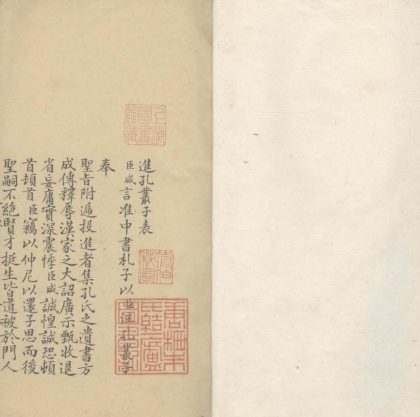 進孔叢子表
臣咸言准中書札子以臣注孔叢子
奉
聖旨附遞投進者集孔氏之遺書方
成傳釋辱漢家之大詔廣示甄收退
省妄庸實深震悸臣咸誠惶誠恐頓
首頓首臣竊以仲尼以還子思而後
聖嗣不絕賢才挺生皆道被於門人